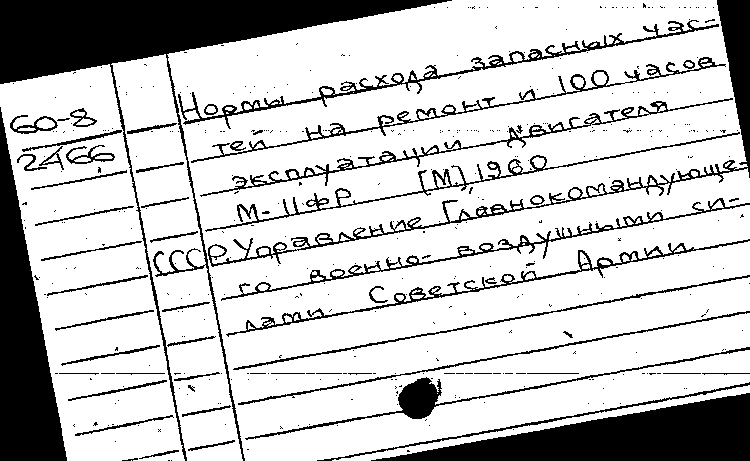 60-8
2466
Нормы расхода запасных час-
тей на ремонт и 100 часов
эксплуатации двигателя
М-11ФР. [М.], 1960
СССР. Управление Главнокомандующе-
го военно-воздушными си-
лами Советской Армии